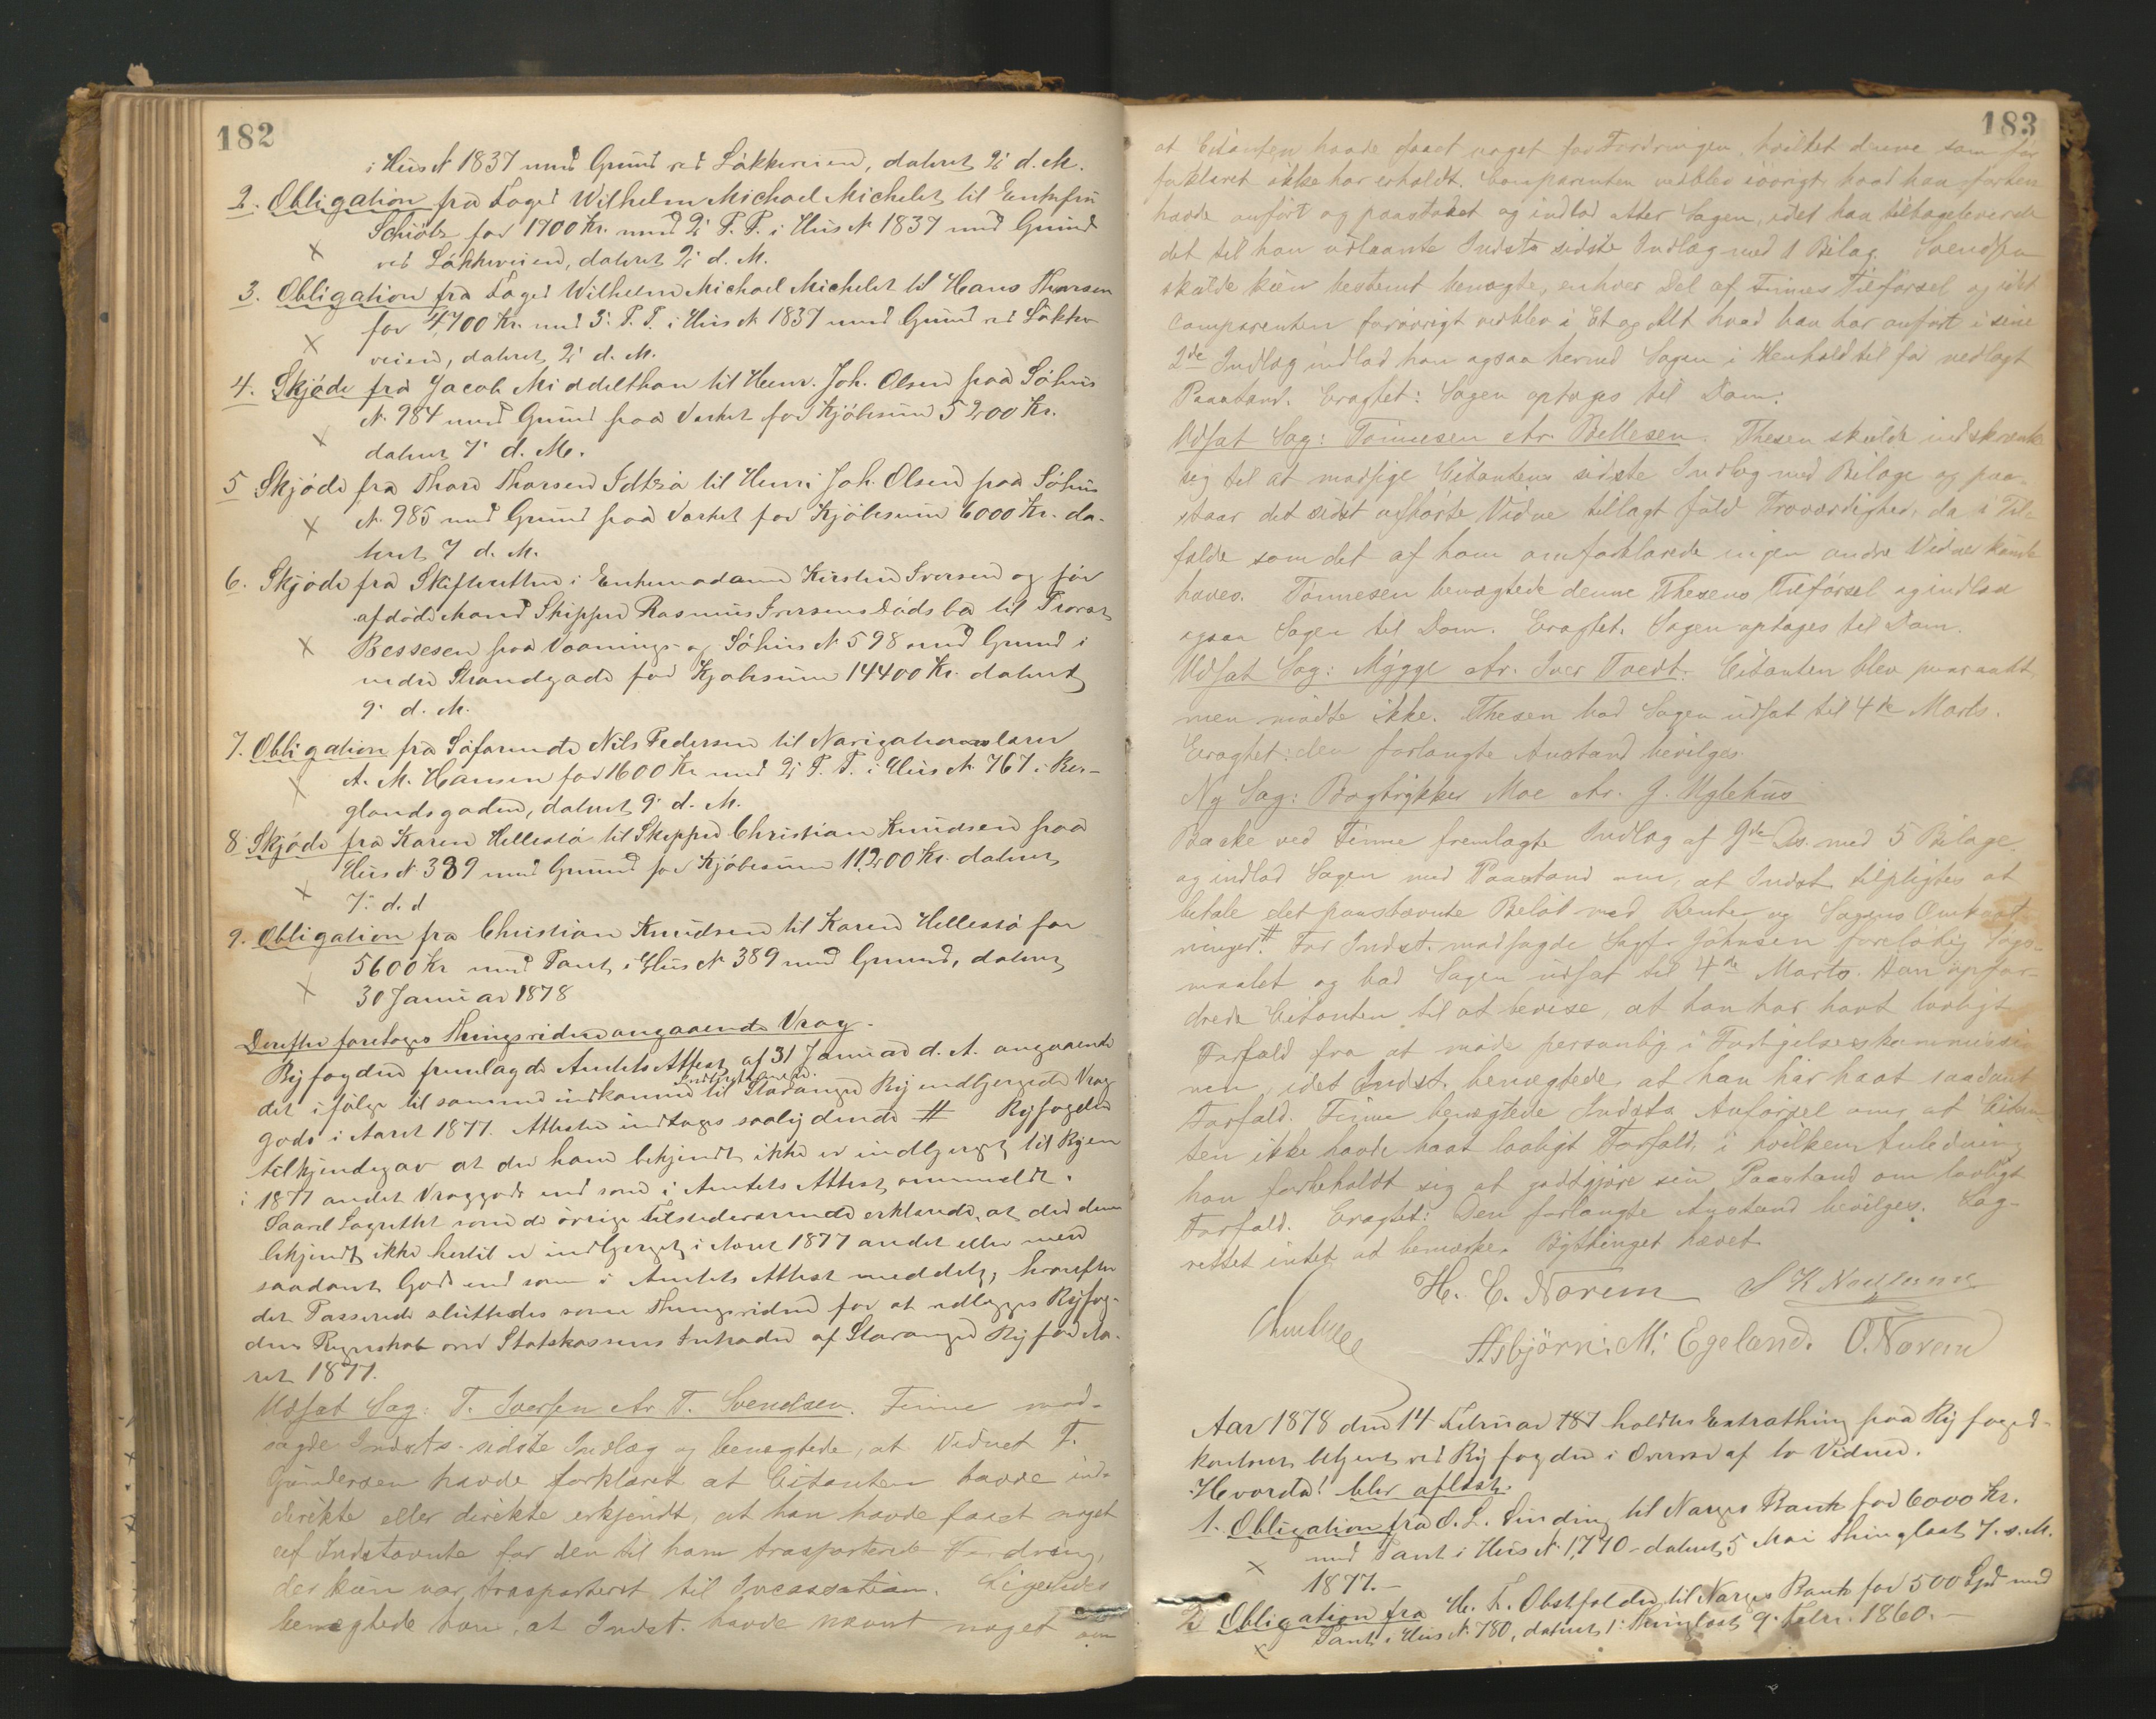 182
i Huus N 1837 med Grund ved Løkkeveien, datert 2' d. M.
2. Obligation fra Foged Wilhelm Michael Michelet til Enkefru
Schiøtz for 1700 Kr. med 2' P. P. i Huus N 1837 med Grund
ved Løkkeveien, datert 2' d. M.
3. Obligation fra Foged Wilhelm Michael Michelet til Hans Thorsen
for 4,700 Kr. med 3' P. P. i Huus N 1837 med Grund ved Løkke-
veien, datert 2' d. M.
4. Skjøde fra Jacob Middelthon til Henr. Joh. Olsen paa Søhus
N. 984 med Grund paa Værket for Kjøbesum 5200 Kr.
datert 7' d. M.
5 Skjøde fra Thore Thorsen til Henr. Joh. Olsen paa Søhus
N. 985 med Grund paa Værket for Kjøbesum 6000 Kr. da-
tert 7 d. M.
6. Skjøde fra Skifteretten i Enkemadame Kirsten Iversen og før
afdøde Mand Skipper Rasmus Iversens Dødsbo til
Bessesen paa Vaanings- og Søhus N. 598 med Grund i
nedre Strandgade for Kjøbesum 14400 Kr. datert
9' d. M.
7. Obligation fra Søfarende Nils Pedersen til Navigationslærer
A. M. Hansen for 1600 Kr med 2' P. P. i Huus N. 767 i Ber-
glandsgaden, datert 9' d. M.
8. Skjøde fra Karen Hellestø til Skipper Christian Knudsen paa
Huus N. 389 med Grund for Kjøbesum 11,200 Kr. datert
7' d. d
9. Obligation fra Christian Knudsen til Karen Hellestø for
5600 Kr med Pant i Huus N 389 med Grund, datert
30 Januar 1878
Derefter foretoges Thingsvidne angaaende Vrag.
Byfogden fremlagde Amtets Attest af 31 Januar d. A. angaaende
det ifølge til samme indkomne til Stavanger By indbjergede Vrag
gods i Aaret 1877. Attesten indtages saalydende # Byfogden
tilkjendegav at der ham bekjendt ikke er indbjerget til Byen
i 1877 andet Vraggods end som i Amtets Attest ommeldt.
Saavel Lagrettet som de øvrige Tilstedeværende erklærede, at der dem
bekjendt ikke hertil er indbjerget i Aaret 1877 andet eller mere
saadant Gods end som i Amtets Attest meddelt, hvorefter
det Passerede sluttedes som Thingsvidne for at vedlægges Byfog-
dens Regnskab over Statskassens Intrader af Stavanger By for Aa-
ret 1877.
Udsat Sag: T. Iversen ctr T. Svendsen. Finne mod-
sagde Indsts. sidste Indlæg og benægtede, at Vidnet T.
Gundersen havde forklaret at Citanten havde in-
direkte eller direkte erkjendt, at han havde faaet noget
af Indstævnte for den til ham trasporterede Fordring,
der kun var trasporteret til Incassation. Ligeledes
benægtede han, at Indst. havde nævnt noget om
183
at Citanten havde faaet noget for Fordringen, hvilket denne som før
forklaret ikke har erholdt. Comparenten vedblev iøvrigt hvad han forhen
havde anført og paastaaet og indlod atter Sagen, idet han tilbageleverede
det til ham udlaante Indsts sidste Indlæg med 1 Bilag. Svendsen
skulde kun bestemt benægte, enhver Del af Finnes Tilførsel og idet
Comparenten forøvrigt vedblev i Et og Alt hvad han har anført i sine
2de Indlæg indlod han ogsaa hermed Sagen i Henhold til før nedlagt
Paastand. Eragtet: Sagen optages til Dom.
Udsat Sag: Tønnesen ctr. Bellesen. Thesen skulde indskrænke
sig til at modsige Citantens sidste Indlæg med Bilage og paa-
staar det sidst afhørte Vidne tillagt fuld Troværdighed, da i Til-
fælde som det af ham omforklarede ingen andre Vidner kunde
haves. Tønnesen benægtede denne Thesens Tilførsel og indlod
ogsaa Sagen til Dom. Eragtet. Sagen optages til Dom.
Udsat Sag: Mygge ctr. Iver Tvedt. Citanten blev paaraabt
men mødte ikke. Thesen bad Sagen udsat til 4de Marts.
Eragtet: den forlangte Anstand bevilges.
Ny Sag: Bogtrykker Moe ctr. J. Uglehus
Baske ved Finne fremlagte Indlæg af 9de Ds. med 5 Bilage
og indlod Sagen med Paastand om, at Indst. tilpligtes at
betale det paastævnte Beløb med Renter og Sagens Omkost-
ninger #. For Indst. modsagde Sagf. Johnsen foreløbig Søgs-
maalet og bad Sagen udsat til 4de Marts. Han opfor-
drede Citanten til at bevise, at han har havt lovligt
Forfald fra at møde personlig i Forligelseskommissio-
nen, idet Indst. benægtede, at han har havt saadant
Forfald. Finne benægtede Indsts Anførsel om, at Citan-
ten ikke havde havt lovligt Forfald, i hvilken Anledning
han forbeholdt sig at godtgjøre sin Paastand om lovligt
Forfald. Eragtet: Den forlangte Anstand bevilges. Lag-
rettet intet at bemærke. Bythinget hævet.
H. C. Norem
Asbjörn. M. Egeland. O. Norem
Aar 1878 den 14 Februar holdtes Extrathing paa Byfoged-
kontoret betjent ved Byfogden i Overvær af to Vidner.
Hvorda! blev aflæst:
1. Obligation fra O. L. Sinding til Norges Bank for 6000 Kr.
med Pant i Huus N 1,770 datert 5 Mai thinglæst 7. s. M.
1877.-
2 Obligation fra H. T. Obstfelder til Norges Bank for 500 Spd med
Pant i Huus N. 780, datert 1' thinglæst 9' Febr. 1860.-